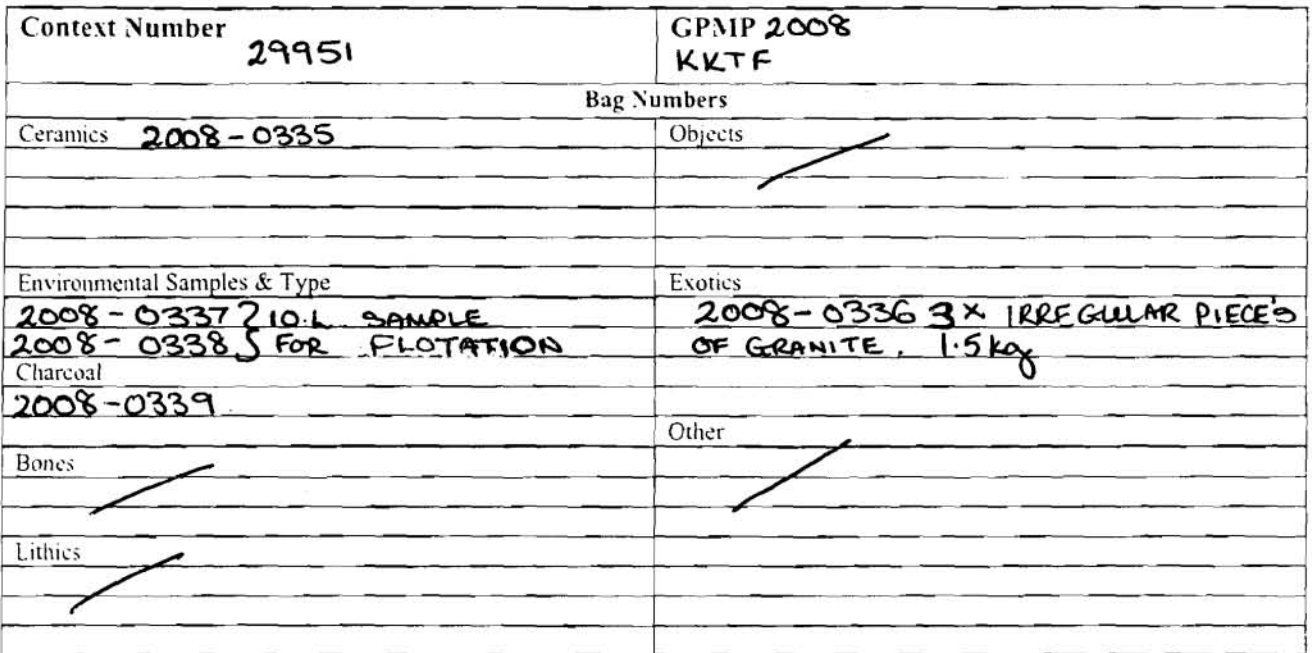 Context Number
29951
GPMP 2008
KKTF
Bag Numbers
Ceramics 2008-0335
Objects
Environmental Samples & Type
2008-0337 } 10.L SAMPLE
2008-0338 } FOR FLOTATION
Charcoal
2008-0339
Bones
Lithics
Exotics
2008-0336 3 x IRREGULAR PIECE'S
OF GRANITE. 1.5 kg
Other